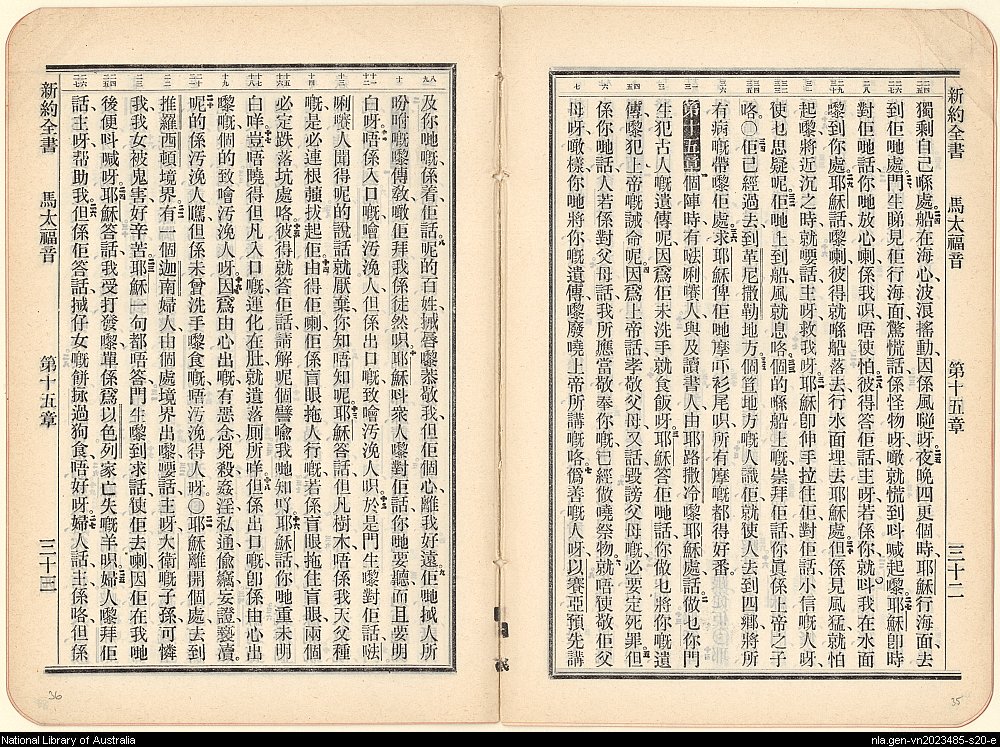 新約全書 馬太福音 第十五章 三十二
獨剩自己喺處船在海心波浪搖動因係風𢫏呀夜晚四更個時耶穌行海面去
到佢哋處門生睇見佢行海面驚慌話係怪物呀噉就慌到呌喊起嚟耶穌卽時
對佢哋話你哋放心喇係我呮唔使怕彼得答佢話主呀若係你就呌我在水面
嚟到你處耶穌話嚟喇彼得就喺船落去行水面埋去耶穌處但係見風猛就怕
起嚟將近沉之時就𠹌話主呀救我呀耶穌卽伸手拉住佢對佢話小信嘅人呀
使乜思疑呢佢哋上到船風就息咯個的喺船上嘅崇拜佢話你眞係上帝之子
咯〇佢已經過去到革尼撒勒地方個笪地方嘅人識佢就使人去到四鄉將所
有病嘅帶嚟佢處求耶穌俾佢哋摩吓衫尾呮所有摩嘅都得好番
第十五章 個陣時有㗎唎㘔人與及讀書人由耶路撒冷嚟耶穌處話做乜你門
生犯古人嘅遺傳呢因爲佢未洗手就食飯呀耶穌答佢哋話你做乜將你嘅遺
傳嚟犯上帝嘅誡命呢因爲上帝話孝敬父母又話毀謗父母嘅必要定死罪但
係你哋話人若係對父母話我所應當敬奉你嘅已經做曉祭物就唔使敬佢父
母呀噉樣你哋將你嘅遺傳嚟廢曉上帝所講嘅咯僞善嘅人呀以賽亞預先講
新約全書 馬太福音 第十五章 三十三
及你哋嘅係着佢話呢的百姓㨢唇嚟恭敬我但佢個心離我好遠佢哋㨢人所
吩咐嘅嚟傳敎噉佢拜我係徒然呮耶穌呌衆人嚟對佢話你哋要聽而且要明
白呀唔係入口嘅噲汚浼人但係出口嘅致噲汚浼人呮於是門生嚟對佢話㗎
唎㘔人聞得呢的說話就厭棄你知唔知呢耶穌答話但凡樹木唔係我天父種
嘅是必連根强拔起佢由得佢喇佢係盲眼拖人行嘅若係盲眼拖住盲眼兩個
必定跌落坑處咯彼得就答佢話請解呢個譬喩我哋知吖耶穌話你哋重未明
白咩豈唔曉得但凡入口嘅運化在肚就遺落厠所咩但係出口嘅卽係由心出
嚟嘅個的致噲汚浼人呀因爲由心出嘅有惡念兇殺姦淫私通偸竊妄證褻瀆
呢的係汚浼人嘅但係未曾洗手嚟食嘅唔汚浼得人呀〇耶穌離開個處去到
推羅西頓境界有一個迦南婦人由個處境界出嚟𠹌話主呀大衛嘅子孫可憐
我我女被鬼害好辛苦耶穌一句都唔答門生嚟到求話使佢去喇因佢在我哋
後便呌喊呀耶穌答話我受打發嚟單係爲以色列家亡失嘅羊呮婦人嚟拜佢
話主呀帮助我但係佢答話㨢仔女嘅餅掁過狗食唔好呀婦人話主係咯但係
36
35
National Library of Australia
nla.gen-vn2023485-s20-e